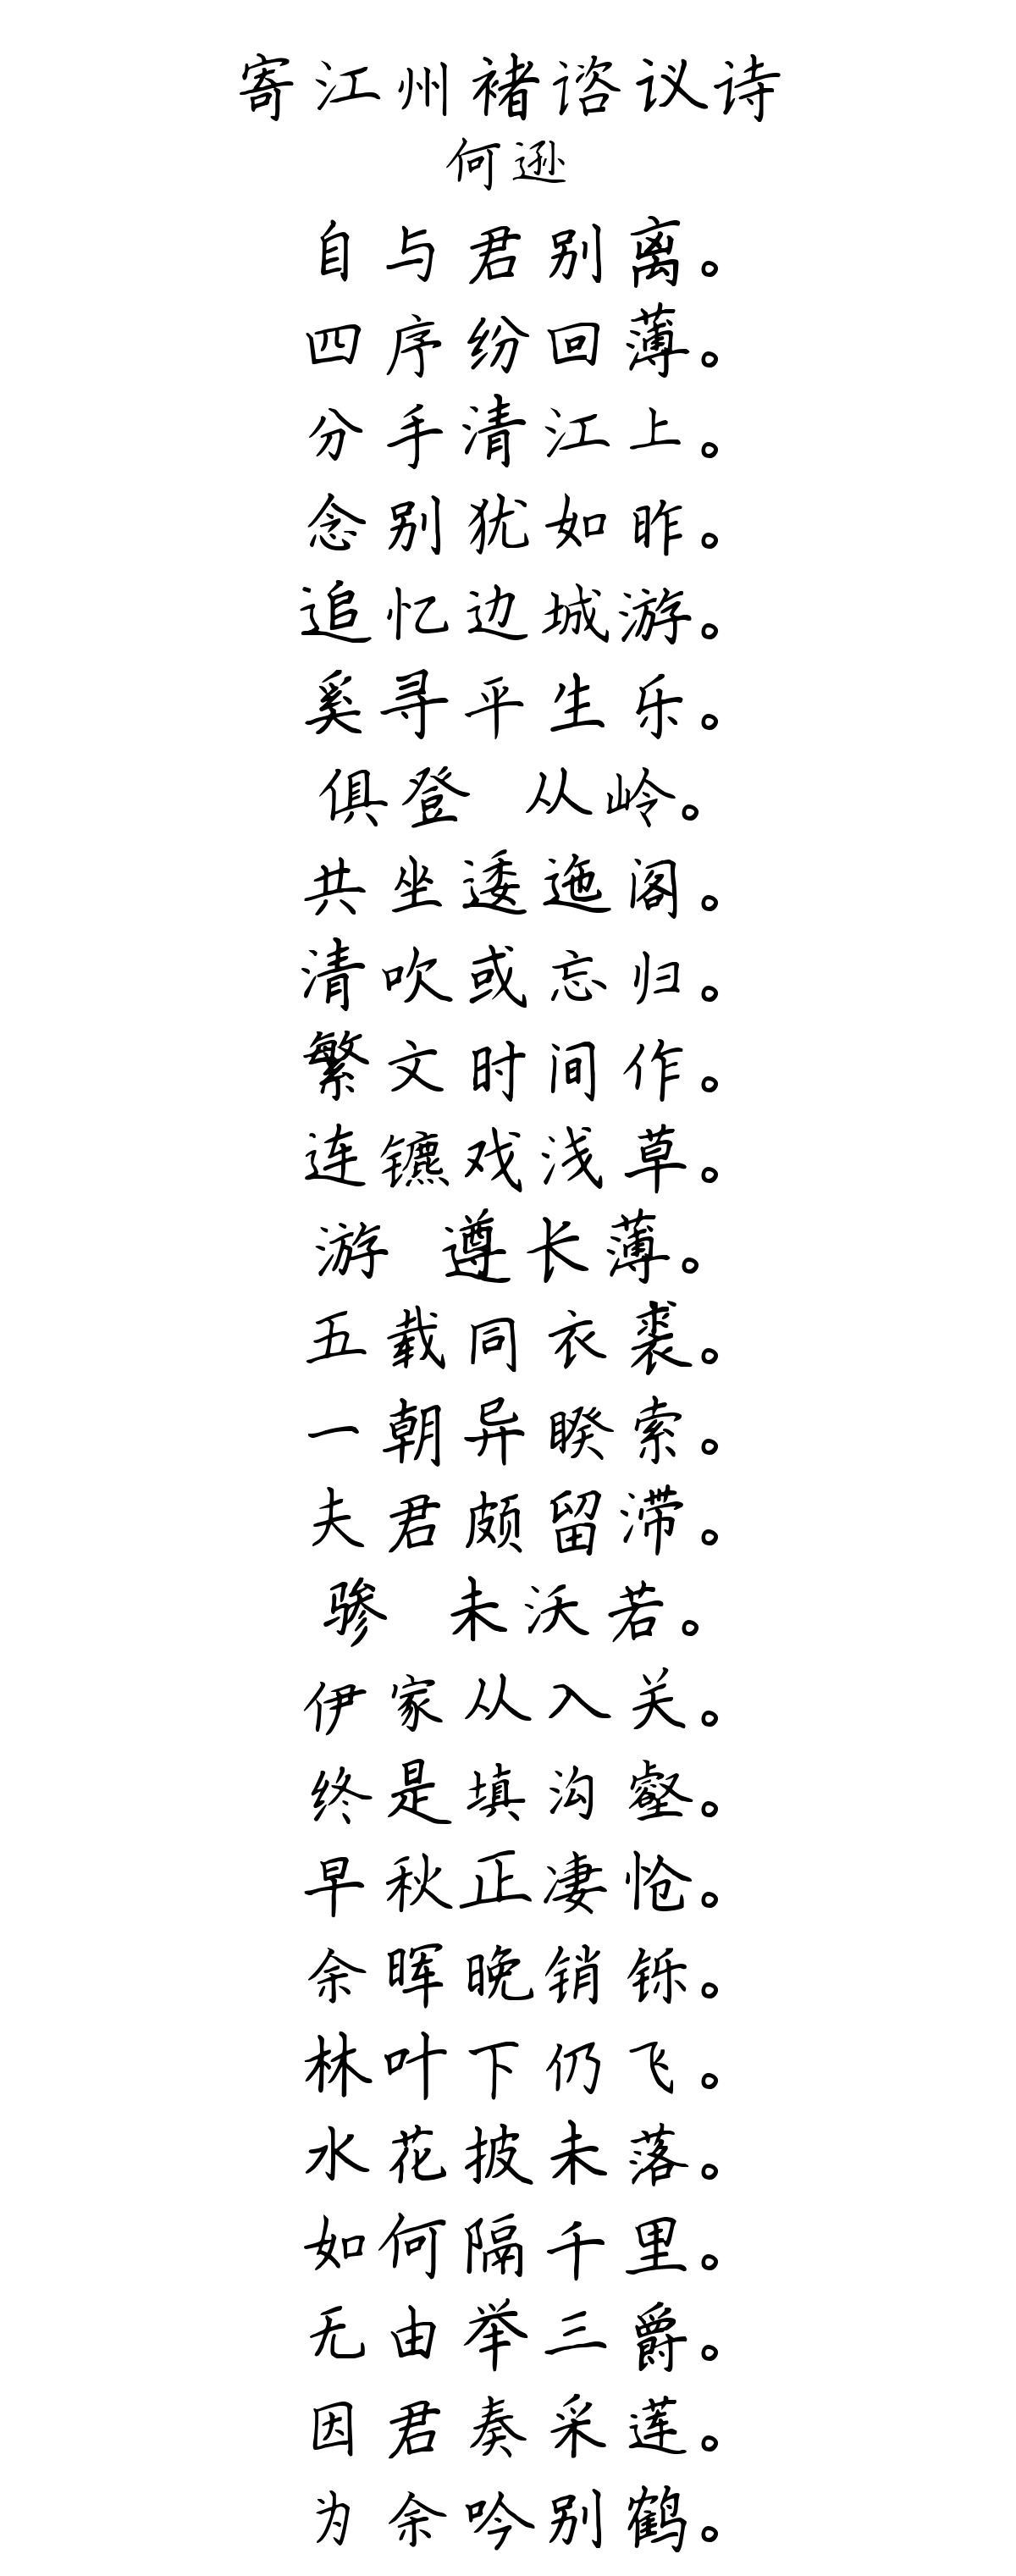 寄江州褚谘议诗
何逊
自与君别离。
四序纷回薄。
分手清江上。
念别犹如昨。
追忆边城游。
奚寻平生乐。
俱登 从岭。
共坐逶迤阁。
清吹或忘归。
繁文时间作。
连镳戏浅草。
游 遵长薄。
五载同衣裘。
一朝异暌索。
夫君颇留滞。
骖 未沃若。
伊家从入关。
终是填沟壑。
早秋正凄怆。
余晖晚销铄。
林叶下仍飞。
水花披未落。
如何隔千里。
无由举三爵。
因君奏采莲。
为余吟别鹤。